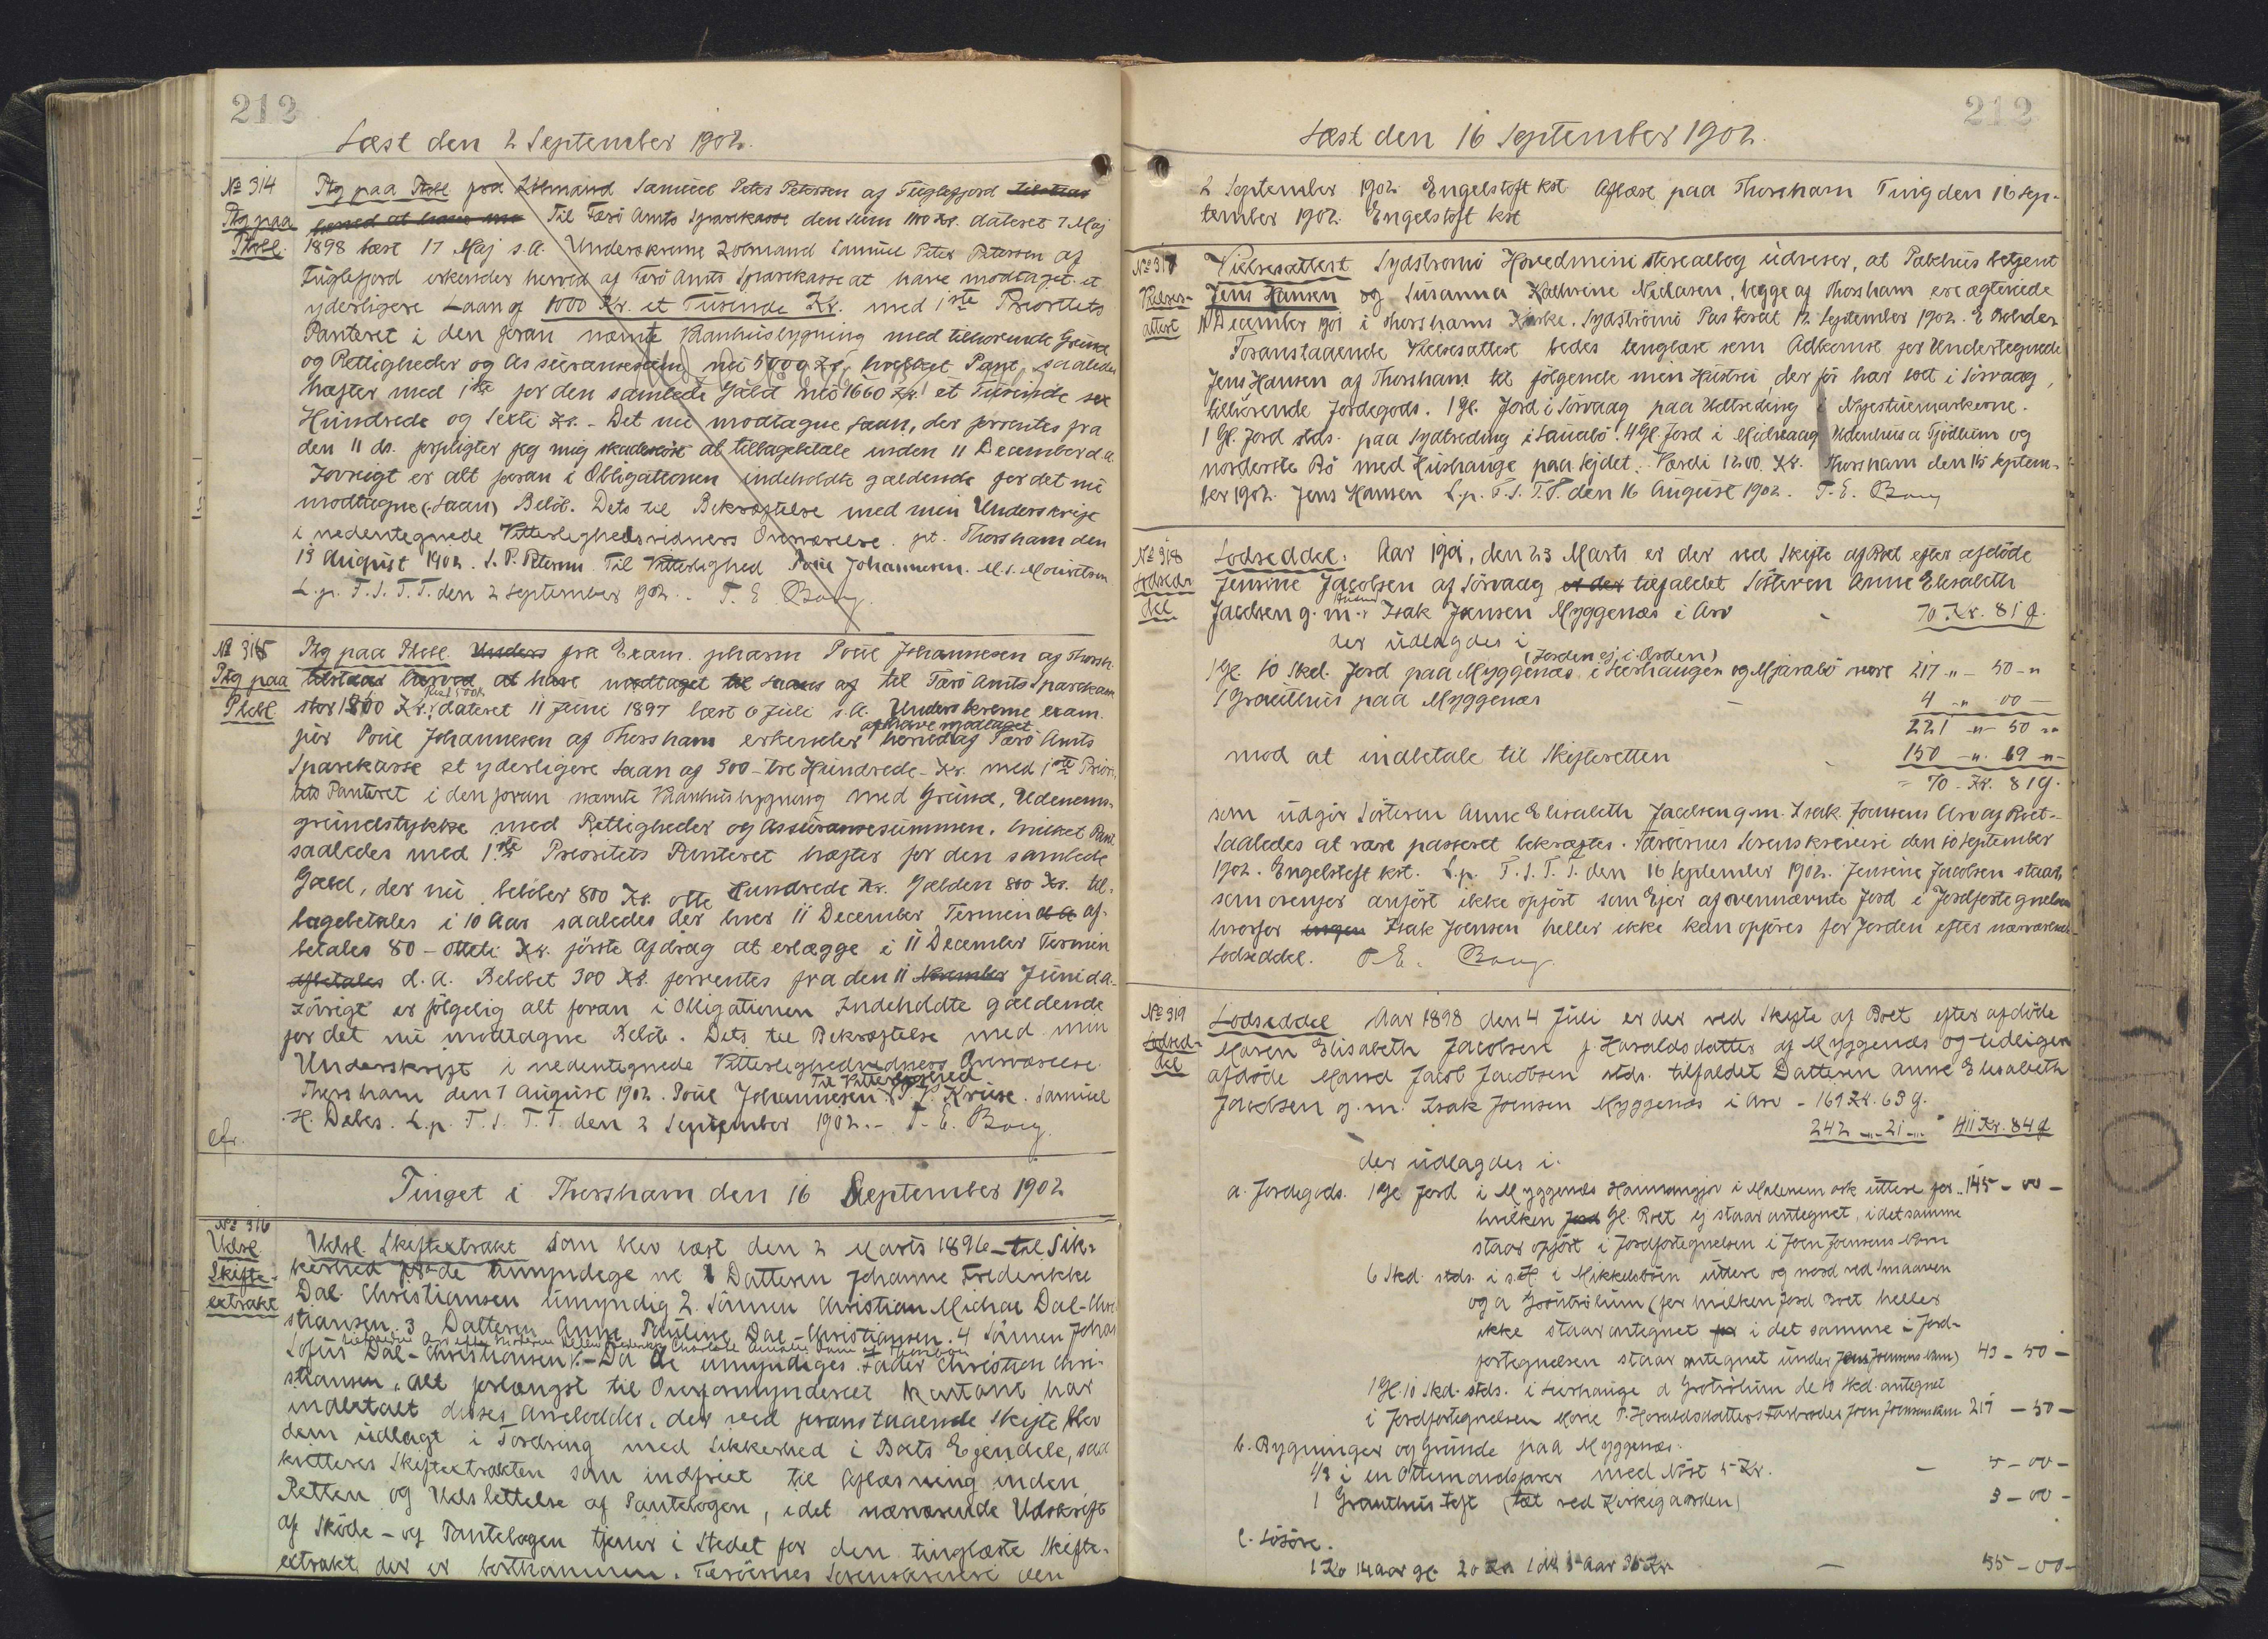 212
Læst den 2 September 1902.
№ 314
Ptg paa
Ptobl.
Ptg paa Ptobl fra Lolmand Samuel Peter Petersen af Fuglefjord
Til Færö Amts Sparekasse den Sum 1100 Kr. dateret 7 Maj
1898 læst 17 Maj s.A. Underskrevne Lolmand Samuel Peter Petersen af
Fuglefjord erkender herved af Færö Amts Sparekasse at have modtaget et
yderligere Laan af 1000 Kr. et Tusende Kr. med 1ste Prioritets
Panteret i den foran nævnte Vaanhusbygning med tilhørende Grund
og Rettigheder og Assurancesum nu 5000 Kr, hvilket Pant saaledes
hæfter med 1ste for den samlede Gjæld nu 1660 Kr. et Tusinde sex
Hundrede og Sexti Kr. - Det nu modtagne Laan, der forrentes fra
den 11 ds. forpligter jeg mig skadeslöst at tilbagebetale inden 11 December d.a.
Iøvrigt er alt foran i Obligationen indeholdte gældende for det nu
modtagne (Laan) Belöb. Dets til Bekræftelse med min Underskrift
i nedentegnede Vitterlighedsvidners Overværelse. pt. Thorshavn den
13 August 1902. S. P. Petersen Til Vitterlighed Poul Johannesen. M. S. Mouritsen
L. p. F. S. T. T. den 2 September 902. - T. E. Borg.
№ 315
Ptg paa
Ptobl
Ptg paa Ptobl. Unders fra Exam. pharm Poul Johannesen af Thorsh.
tilstaar herved at have modtaget til Laans af til Færö Amts Sparekasse
stor 1800 Kr. Rest 500 Kr dateret 11 Juni 1897 læst 6 Juli s.A. Underskrevne exam.
jur Poul Johannesen af Thorshavn erkender at have modtaget herved af Færö Amts
Sparekasse et yderligere Laan af 300 - tre Hundrede - Kr. med 1ste Prior.
tets Panteret i den foran nævnte Vaanhusbygning med Grund, Udenoms-
grundstykke med Rettigheder og Assurancesummen, hvilket Pant
saaledes med 1ste Prioritets Panteret hæfter for den samlede
Gæld, der nu belöber 800 Kr. otte Hundrede Kr. Gælden 800 Kr. til-
bagebetales i 10 Aar saaledes der hver 11 December Termin d.a. af-
betales 80 - otteti Kr. förste Afdrag at erlægge i 11 December Termin
afbetales d. A. Belöbet 300 Kr. forrentes fra den 11 November Juni d.a.
Iövrigt er fölgelig alt foran i Obligationen Indeholdte gældende
for det nu modtagne Belöb. Dets til Bekræftelse med min
Underskrift i nedentegnede Vitterlighedvidners Overværelse.
Thorshavn den 7 August 1902. Poul Johannesen Til Vitterlighed Kruse. Samuel
H. Debes. L. p. F. S. T. T. den 2 September 1902. - T. E. Borg.
cfr.
Tinget i Thorshavn den 16 September 1902
№ 316
Udsl
Skifte-
extrakt
Udsl. Skifteextrakt som blev læst den 2 Marts 1896 - til Sik-
kerhed for de umyndige ne 1 Datteren Johanne Frederikke
Dal-Christiansen umyndig 2. Sönnen Christian Michae Dal-Chri-
stiansen. 3 Datteren Anne Pauline Dal-Christiansen. 4 Sönnen Johan
Sofus Dal-Christiansen. - Da de umyndiges Fader Christian Chri-
stiansen, alt forlængst til Overformynderiet kontant har
indbetalt disses Arvelodder, der ved foranstaaende Skifte blev
dem udlagt i Fordring med Sikkerhed i Boets Ejendele, saa
kvitteres Skifteextrakten som indfriet til Aflæsning inden
Retten og Udslettelse af Pantebogen, idet nærværende Udskrift
af Sköde- og Pantebogen tjener i Stedet for den tinglæste Skifte-
extrakt der er bortkommen. Færöernes Sorenskriveri den
212
Læst den 16 September 1902.
2 September 1902 Engelstoft kst. Aflæst paa Thorshavn Ting den 16 Sep-
tember 1902. Engelstoft kst
№ 317
Vielses-
attest
Vielsesattest Sydströmö Hovedministerealbog udviser, at Pakhus betjent
Jens Hansen og Susanna Kathrine Niclasen, begge af Thorshavn ere ægteviede
11 December 1901 i Thorshavns Kirke. Sydströmö Pastorat 12 September 1902. E
Foranstaaende Vielsesattest bedes tinglæst som Adkomst for Undertegnede
Jens Hansen af Thorshavn til fölgende min Hustru der för har boet i Sörvaag,
tilhörende Jordegods. 1 Gl. Jord i Sörvaag paa Udtreding i Nyestuemarkerne.
1 Gl. Jord stds. paa Sydtreding i Sauabö. 4 Gl. Jord i Midvaag Udenhus a Tjödlum og
norderste Bö med Hushauge paa Ejdet. Værdi 1200 Kr. Thorshavn den 15 Septem-
ber 1902. Jens Hansen L.p. F. S. T. T. den 16 August 1902. T. E. Borg
№ 318
Lodsed-
del
Lodseddel. Aar 1901, den 23 Marts er der ved Skifte af Boet efter afdöde
Jensine Jacobsen af Sörvaag er der tilfaldet Sösteren Anne Elisabeth
Jacobsen g. m. Isak Joensen Myggenæs i Arv - 70 Kr. 81 g.
der udlagdes i
(Jorden ej i Orden)
1 Gl. 10 Skd. Jord paa Myggenæs i Leerhaugen og Mjavabö nore 217 „ - 50 - „
1 Grauthus paa Myggenæs - 4 - „ 00 -
221 - „ - 50 „
mod at indbetale til Skifteretten - 150 - „ 69 „ -
= 70 - Kr. 81 g.
som udgör Sösteren Anne Elisabeth Jacobsen g.m. Isak Joensens Arv af Boet -
Saaledes at være passeret bekræftes. Færöernes Sorenskriveri den 10 September
1902. Engelstoft kst. L.p. F. S. T. T. den 16 September 1902. Jensine Jacobsen staar
som ovenfor anfört ikke opfört som Ejer af ovennævnte Jord i Jordfortegnelsen
hvorfor ingen Isak Joensen heller ikke kan opföres for Jorden efter nærværende
Lodseddel. T. E. Borg.
№ 319
Lodsed-
del
Lodseddel Aar 1898 den 4 Juli er der ved Skifte af Boet efter afdöde
Maren Elisabeth Jacobsen f. Haraldsdatter af Myggenæs og tidligere
afdöde Mand Jacob Jacobsen stds. tilfaldet Datteren Anne Elisabeth
Jacobsen g. m. Isak Joensen Myggenæs i Arv - 169 Kr. 63 g.
242 - „ - 21 - „ 411 Kr. 84 g
der udlagdes i.
a. Jordegods. 1 Gl. Jord i Myggenæs Hamrangjov i Malenemark uttere for 145 - 00 -
hvilken Jord Gl. Boet ej staar antegnet, idet samme
staar opfört i Jordfortegnelsen i Joen Joensens Navn
6 Skd. stds. i s.H i Mikkelsböen uttere og nord ved Smaaven
og a Groutrolum (for hvilken Jord Boet heller
ikke staar antegnet for i det samme i Jord-
fortegnelsen staar antegnet under Jens Joensens Navn) 43 - 50 -
1 Gl. 10 Skd. stds. i Leerhauge a Grotrolum de 10 Skd. antegnet
i Jordfortegnelsen Marie P. Haraldsdatters Farbroder Joen Joensens Navn 217 - 50 -
b. Bygninger og Grunde paa Myggenæs.
1/3 i en Ottemandsfarer med Nöst 5 Kr. - 5 - 00 -
1 Grauthus Toft (tæt ved Kirkigaarden) 3 - 00 -
c. Lösöre.
1 Ko 14 aar gl. 20 Kr 1 do 3 Aar 35 Kr. - 55 - 00 -